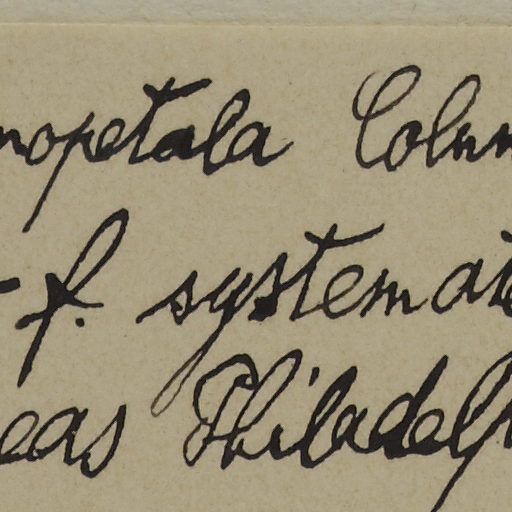 nopetala Colum
f. systemati
eas Philadelp